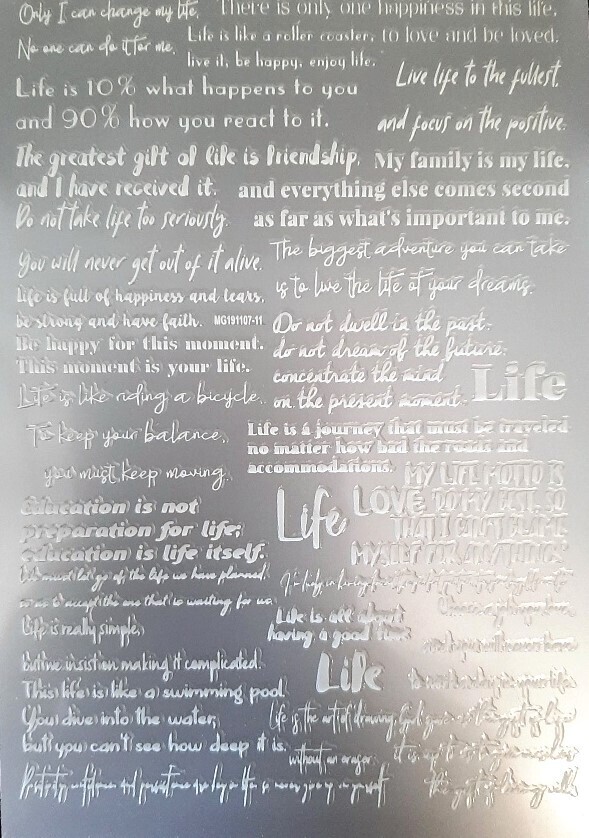 Only I can change my life.
No one can do it for me.
There is only one happiness in this life,
to love and be loved.
Life is like a roller coaster,
live it, be happy, enjoy life.
Life is 10% what happens to you
and 90% how you react to it.
Live life to the fullest,
and focus on the positive.
The greatest gift of life is friendship,
and I have received it.
My family is my life,
and everything else comes second
as far as what's important to me.
Do not take life too seriously.
You will never get out of it alive.
The biggest adventure you can take
is to live the life of your dreams.
Life is full of happiness and tears,
be strong and have faith.
MG191107-11
Do not dwell in the past,
do not dream of the future,
concentrate the mind
on the present moment.
Be happy for this moment.
This moment is your life.
Life
Life is like riding a bicycle.
To keep your balance,
you must keep moving.
Life is a journey that must be traveled
no matter how bad the roads and
accommodations.
MY LIFE MOTTO IS
LOVE DO MY BEST, SO
THAT I CAN'T BLAME
MYSELF FOR ANYTHING.
Life
Education is not
preparation for life;
education is life itself.
We must let go of the life we have planned,
so as to accept the one that is waiting for us.
Life is all about
having a good time.
Life is really simple,
but we insist on making it complicated.
Life
This life is like a swimming pool.
You dive into the water,
but you can't see how deep it is.
Life is the art of drawing
without an eraser.